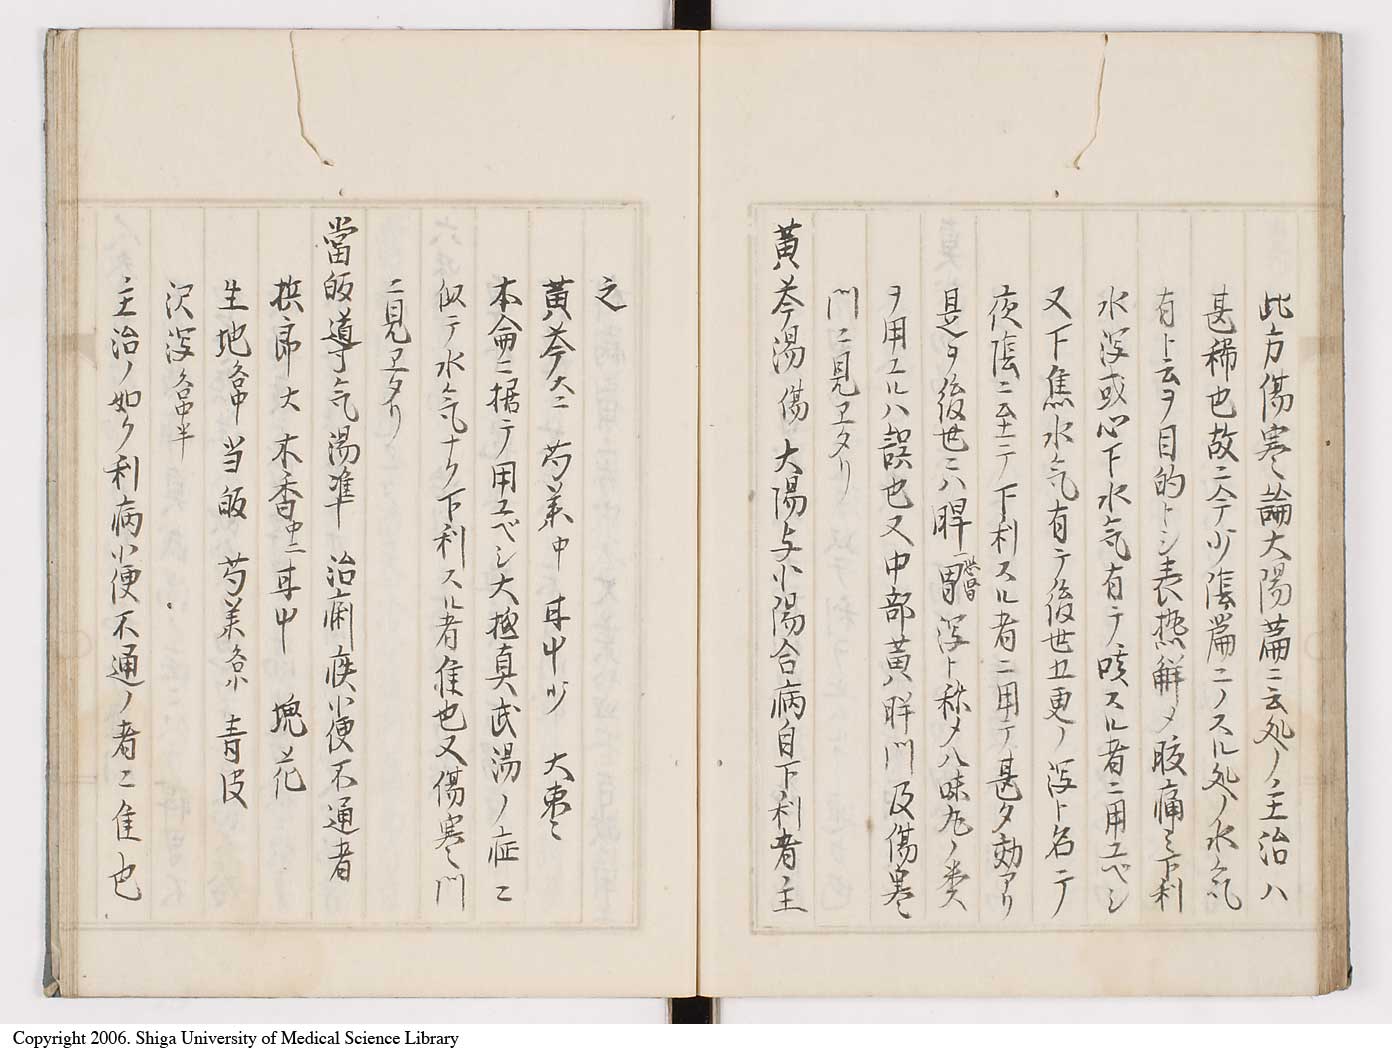 此方傷寒論大陽篇ニ云処ノ主治ハ
甚稀也故ニ今少陰篇ニノスル処ノ水気
有ト云ヲ目的トシ表熱解メ腹痛シ下利
水瀉或心下水気有テ咳スル者ニ用ユベシ
又下焦水気有テ後世五更ノ瀉ト名テ
夜陰ニ至テ下利スル者ニ用テ甚タ効アリ
是ヲ後世ニハ脾胃瀉ト称メ八味丸ノ類
ヲ用ユルハ誤也又中部黄胖門及傷寒
門ニ見ヱタリ
黄芩湯 傷 大陽与少陽合病自下利者主
之
黄芩大ニ 芍薬中 甘中少 大棗ミ
本侖ニ据テ用ユベシ大極真武湯ノ症ニ
似テ水気ナク下利スル者佳也又傷寒門
ニ見ヱタリ
當皈導气湯準 治痢疾小便不通者
梹郎大 木香中ニ 甘中 槐花
生地各中 当皈 芍薬各小 青皮
沢瀉各中半
主治ノ如ク利病小便不通ノ者ニ佳也
Copyright 2006. Shiga University of Medical Science Library